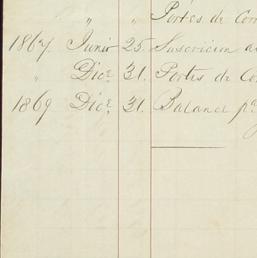 " " Portes de Corr
1867. Junio 25. Suscricion a
" Dice. 31. Portes de Co
1869 Dice. 31. Balance pr.